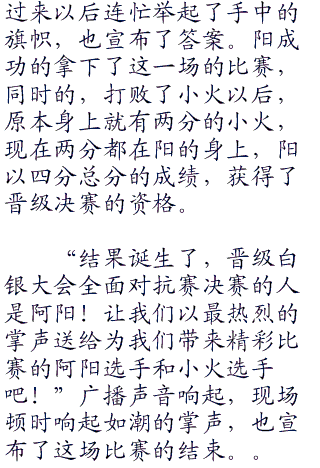 过来以后连忙举起了手中的
旗帜，也宣布了答案。阳成
功的拿下了这一场的比赛，
同时的，打败了小火以后，
原本身上就有两分的小火，
现在两分都在阳的身上，阳
以四分总分的成绩，获得了
晋级决赛的资格。
“结果诞生了，晋级白
银大会全面对抗赛决赛的人
是阿阳！让我们以最热烈的
掌声送给为我们带来精彩比
赛的阿阳选手和小火选手
吧！”广播声音响起，现场
顿时响起如潮的掌声，也宣
布了这场比赛的结束。。